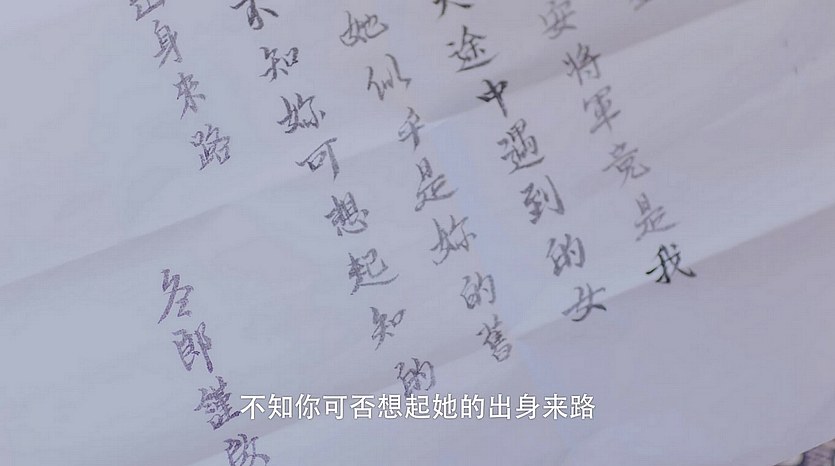 安將軍竟是我
途中遇到的女
她似乎是妳的舊
不知妳可想起知的
出身來路
郎謹啟
不知你可否想起她的出身来路